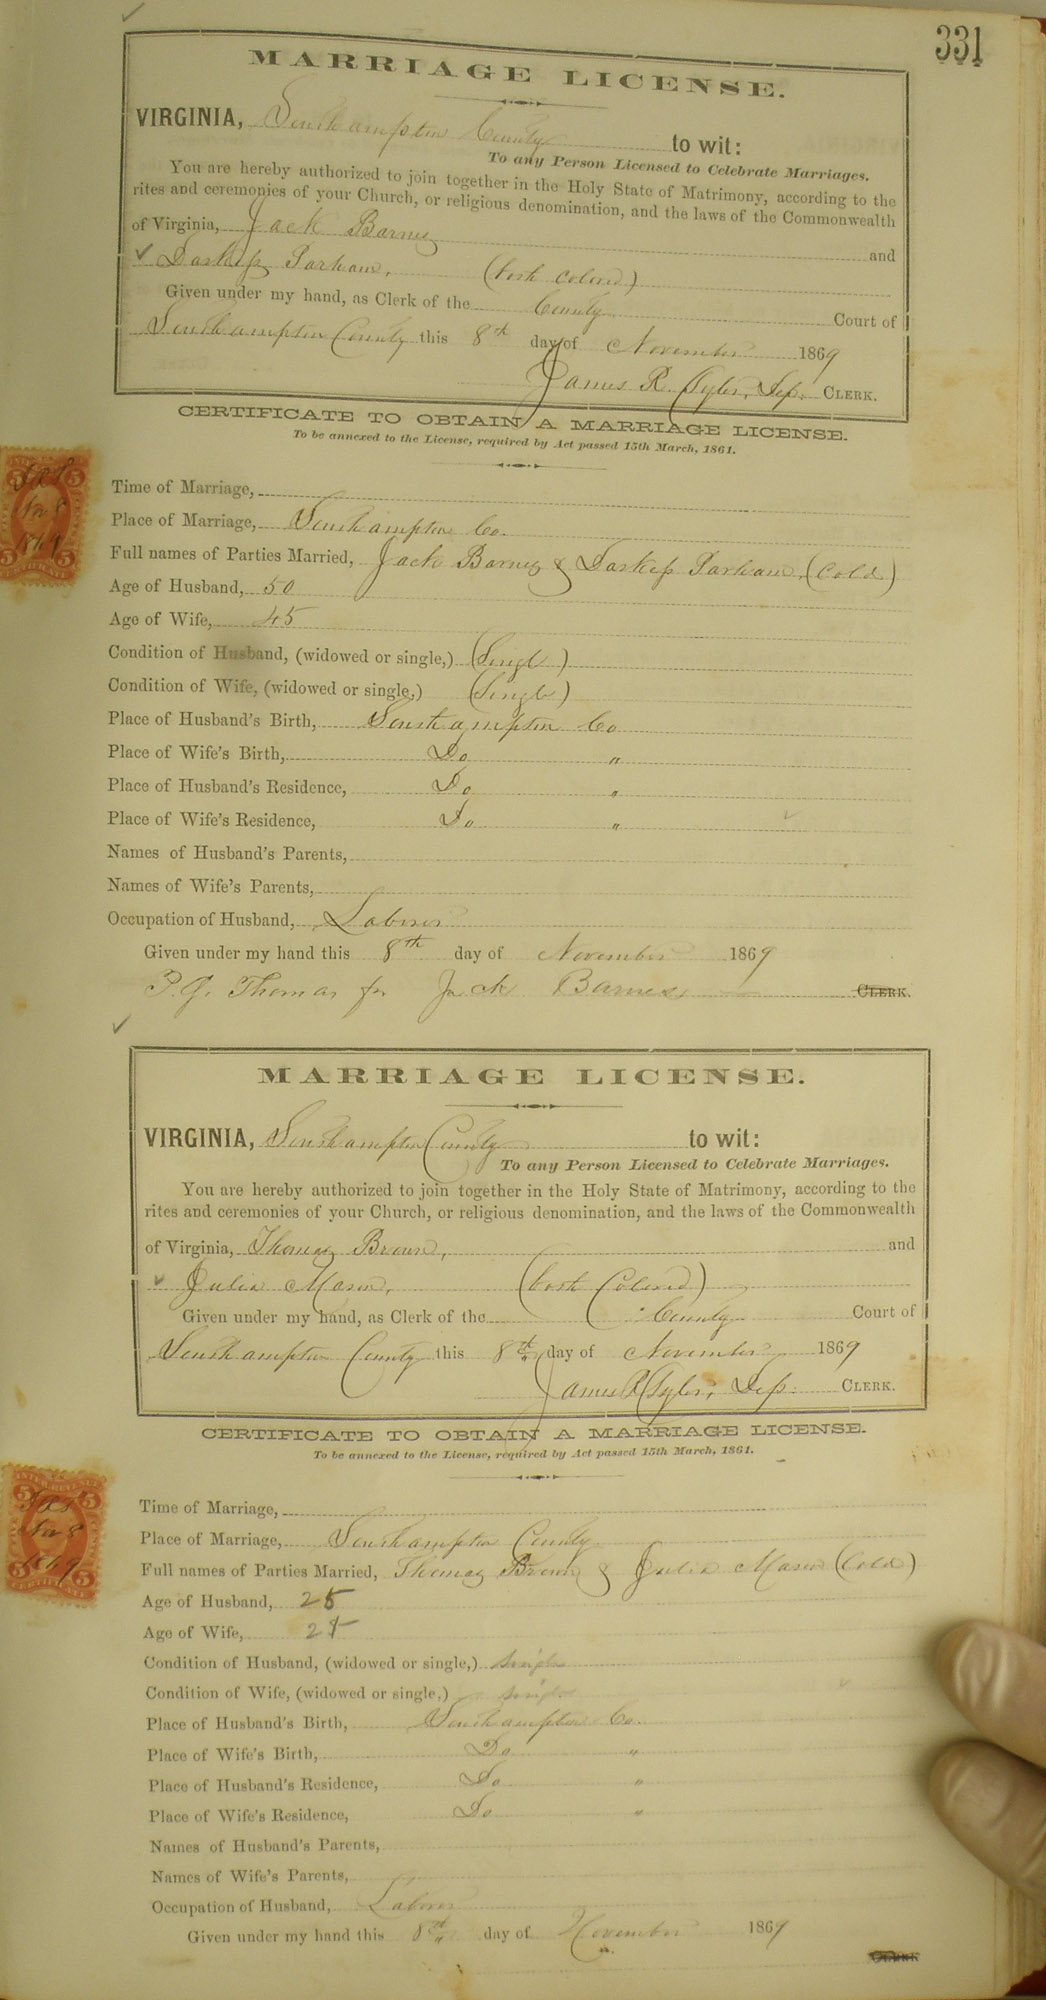 331
MARRIAGE LICENSE.
VIRGINIA, Southampton County to wit:
To any Person Licensed to Celebrate Marriages.
You are hereby authorized to join together in the Holy State of Matrimony, according to the
rites and ceremonies of your Church, or religious denomination, and the laws of the Commonwealth
of Virginia, Jack Barnes and
Parham, (both colored)
Given under my hand, as Clerk of the County Court of
Southampton County this 8th day of November 1869
James R. Tyler, Dep. CLERK.
CERTIFICATE TO OBTAIN A MARRIAGE LICENSE.
To be annexed to the License, required by Act passed 15th March, 1861.
Time of Marriage,
Place of Marriage, Southampton Co.
Full names of Parties Married, Jack Barnes & Parham (Cold)
Age of Husband, 50
Age of Wife, 45
Condition of Husband, (widowed or single,) (Single)
Condition of Wife, (widowed or single,) (Single)
Place of Husband's Birth, Southampton Co
Place of Wife's Birth, Do "
Place of Husband's Residence, Do "
Place of Wife's Residence, Do "
Names of Husband's Parents,
Names of Wife's Parents,
Occupation of Husband, Laborer
Given under my hand this 8th day of November 1869
P. G. Thomas for Jack Barnes CLERK.
5 5
Nov 8
1869
5 5
CERTIFICATE
MARRIAGE LICENSE.
VIRGINIA, Southampton County to wit:
To any Person Licensed to Celebrate Marriages.
You are hereby authorized to join together in the Holy State of Matrimony, according to the
rites and ceremonies of your Church, or religious denomination, and the laws of the Commonwealth
of Virginia, Thomas Brown, and
Julia Mason, (both Colored)
Given under my hand, as Clerk of the County Court of
Southampton County this 8th day of November 1869
James R Tyler, Dep. CLERK.
CERTIFICATE TO OBTAIN A MARRIAGE LICENSE.
To be annexed to the License, required by Act passed 15th March, 1861.
Time of Marriage,
Place of Marriage, Southampton County
Full names of Parties Married, Thomas Brown & Julia Mason (Cold)
Age of Husband, 25
Age of Wife,
Condition of Husband, (widowed or single,) single
Condition of Wife, (widowed or single,) single
Place of Husband's Birth, Southampton Co.
Place of Wife's Birth, Do "
Place of Husband's Residence, Do "
Place of Wife's Residence, Do "
Names of Husband's Parents,
Names of Wife's Parents,
Occupation of Husband, Laborer
Given under my hand this 8th day of November 1869
CLERK
INTER. REVENUE
5 5
Nov 8
1869
5 5
CERTIFICATE